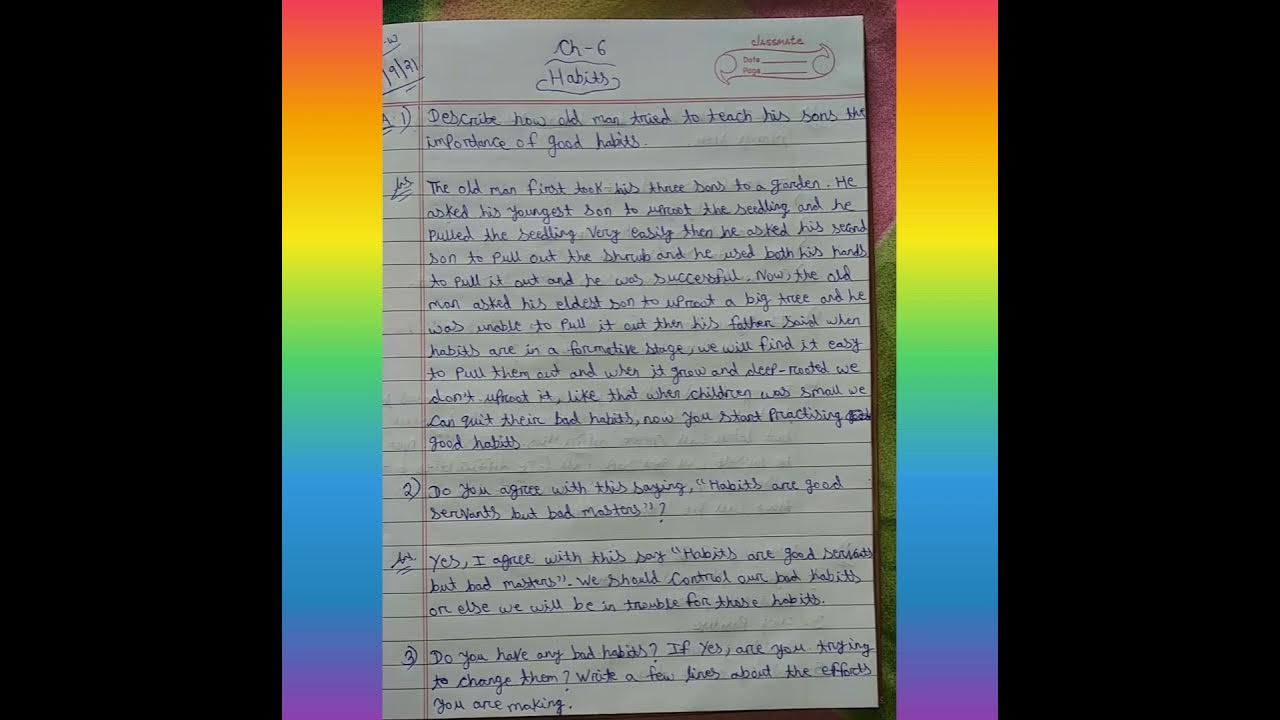 .w
Ch-6
classmate
Date
Page
/9/21
Habits
A. 1) Describe how old man tried to teach his sons the
importance of good habits.
Ans The old man first took his three sons to a garden. He
asked his youngest son to uproot the seedling and he
pulled the seedling very easily then he asked his second
son to pull out the shrub and he used both his hands
to pull it out and he was successful. Now, the old
man asked his eldest son to uproot a big tree and he
was unable to pull it out then his father said when
habits are in a formative stage, we will find it easy
to pull them out and when it grow and deep-rooted we
don't uproot it, like that when children was small we
can quit their bad habits, now you start practising
good habits
2) Do you agree with this saying, "Habits are good
servants but bad masters"?
Ans. Yes, I agree with this say "Habits are good servants
but bad masters". We should control our bad habits
or else we will be in trouble for those habits.
3) Do you have any bad habits? If yes, are you trying
to change them? Write a few lines about the efforts
you are making.